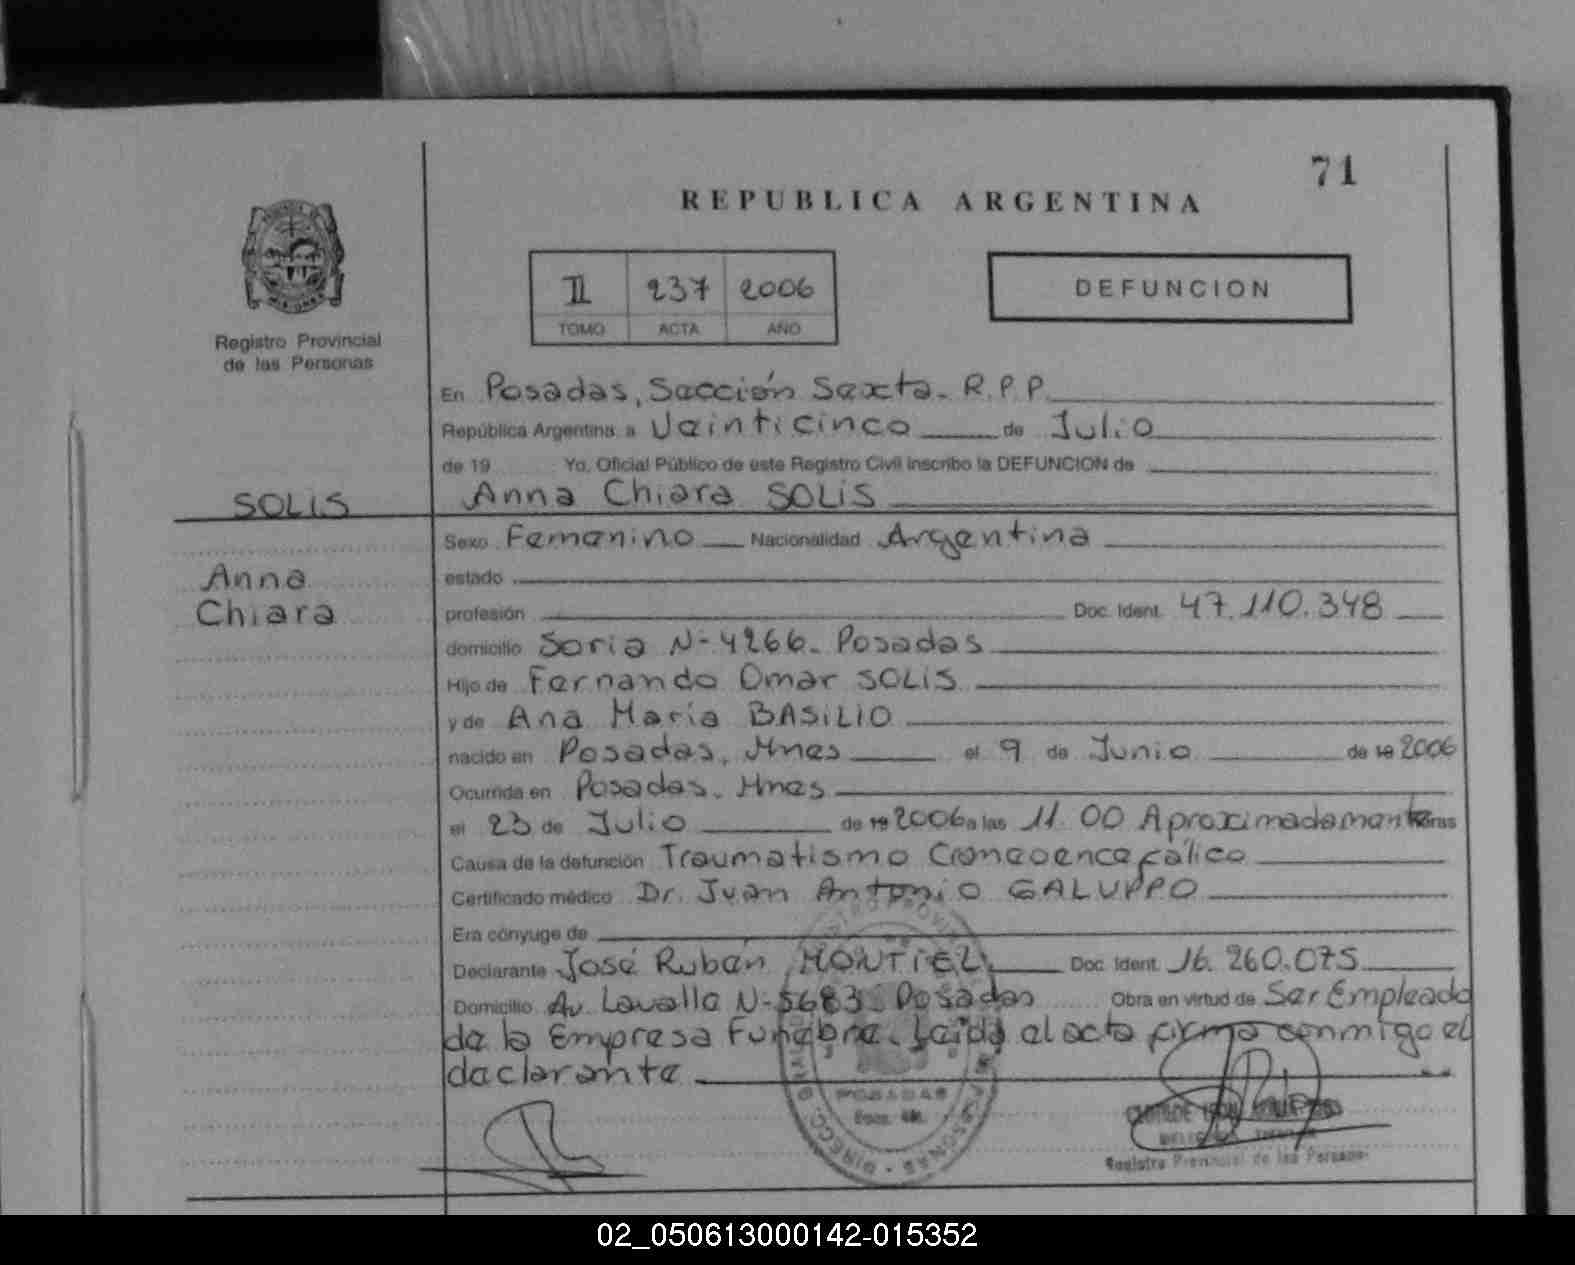 71
REPUBLICA ARGENTINA
II 237 2006
TOMO ACTA AÑO
DEFUNCION
Registro Provincial
de las Personas
En Posadas, Sección Sexta. R.P.P.
República Argentina a Veinticinco de Julio
de 19 Yo, Oficial Público de este Registro Civil inscribo la DEFUNCION de
SOLIS Anna Chiara SOLIS
Sexo Femenino Nacionalidad Argentina
Anna estado
Chiara profesión Doc. Ident. 47.110.348
domicilio Soria N-4266. Posadas
Hijo de Fernando Omar SOLIS
y de Ana María BASILIO
nacido en Posadas, Mnes el 9 de Junio de 19 2006
Ocurrida en Posadas. Mnes
el 23 de Julio de 19 2006 a las 11.00 Aproximadamente horas
Causa de la defunción Traumatismo Craneoencefálico
Certificado médico Dr. Juan Antonio GALUPPO
Era cónyuge de
Declarante José Rubén MONTIEL Doc. Ident. 16.260.075
Domicilio Av Lavalle N-5683 Posadas Obra en virtud de Ser Empleado
de la Empresa Funebre. Leida el acta firma conmigo el
declarante
POSADAS
Registro Provincial de las Personas
02_050613000142-015352